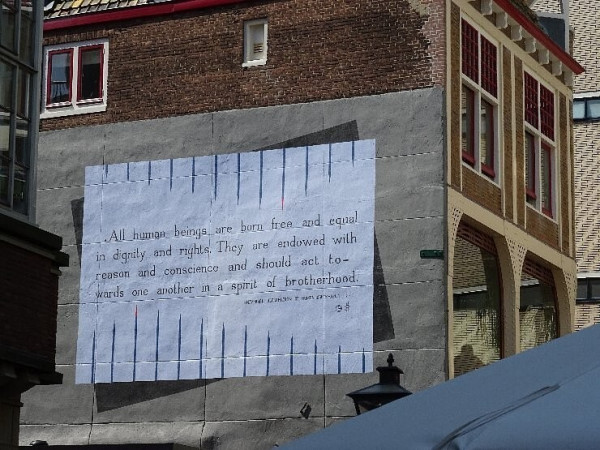 All human beings are born free and equal
in dignity and rights. They are endowed with
reason and conscience and should act to-
wards one another in a spirit of brotherhood.